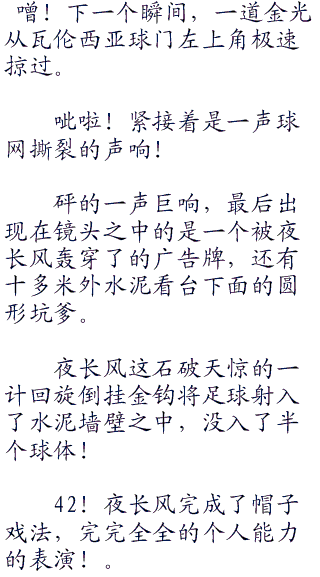 噌！下一个瞬间，一道金光
从瓦伦西亚球门左上角极速
掠过。
呲啦！紧接着是一声球
网撕裂的声响！
砰的一声巨响，最后出
现在镜头之中的是一个被夜
长风轰穿了的广告牌，还有
十多米外水泥看台下面的圆
形坑爹。
夜长风这石破天惊的一
计回旋倒挂金钩将足球射入
了水泥墙壁之中，没入了半
个球体！
42！夜长风完成了帽子
戏法，完完全全的个人能力
的表演！。